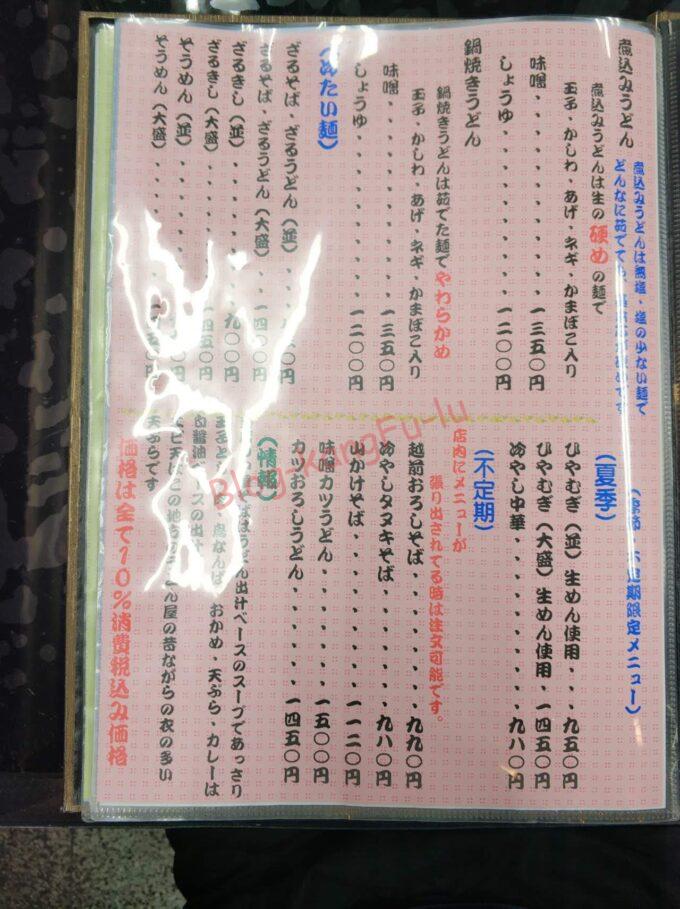 煮込みうどん
煮込みうどんは無塩・塩の少ない麺で
どんなに茹でても
煮込みうどんは生の硬めの麺で
玉子・かしわ・あげ・ネギ・かまぼこ入り
味噌・・・・・・・・・・一三五〇円
しょうゆ・・・・・・・・・一二〇〇円
鍋焼きうどん
鍋焼きうどんは茹でた麺でやわらかめ
玉子・かしわ・あげ・ネギ・かまぼこ入り
味噌・・・・・・・・・・一三五〇円
しょうゆ・・・・・・・・・一二〇〇円
たい麺）
ざるそば・ざるうどん（並）
ざるそば・ざるうどん（大盛）・一四〇〇円
ざるきし（並）・・・・・・九〇〇円
ざるきし（大盛）
そうめん（並）
そうめん（大盛）
不定期限定メニュー）
（夏季）
ひやむぎ（並）生めん使用・・・九五〇円
ひやむぎ（大盛）生めん使用・一四五〇円
冷やし中華・・・・・・・・九八〇円
（不定期）
店内にメニューが
張り出されてる時は注文可能です。
越前おろしそば・・・・・・九九〇円
冷やしタヌキそば・・・・・九八〇円
山かけそば・・・・・・・一一二〇円
味噌カツうどん・・・・・・一五〇〇円
カツおろしうどん・・・・・一四五〇円
（情報）
うどん出汁ベースのスープであっさり
おかめ・天ぷら・カレーは
醤油ベースの出汁
屋の昔ながらの衣の多い
天ぷらです
価格は全て10％消費税込み価格
Blog-KangFu-lu